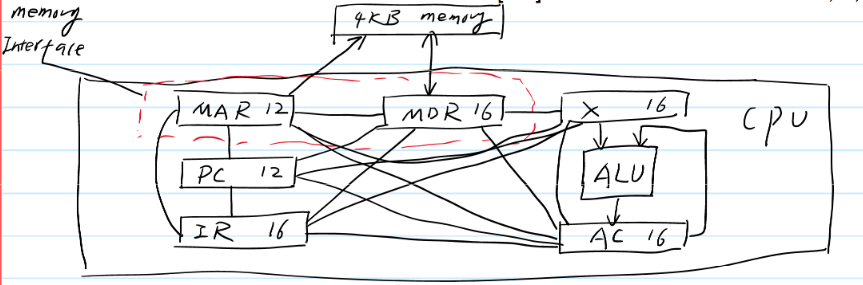 memory
Interface
4KB memory
MAR 12
MDR 16
X 16
CPU
PC 12
ALU
IR 16
AC 16